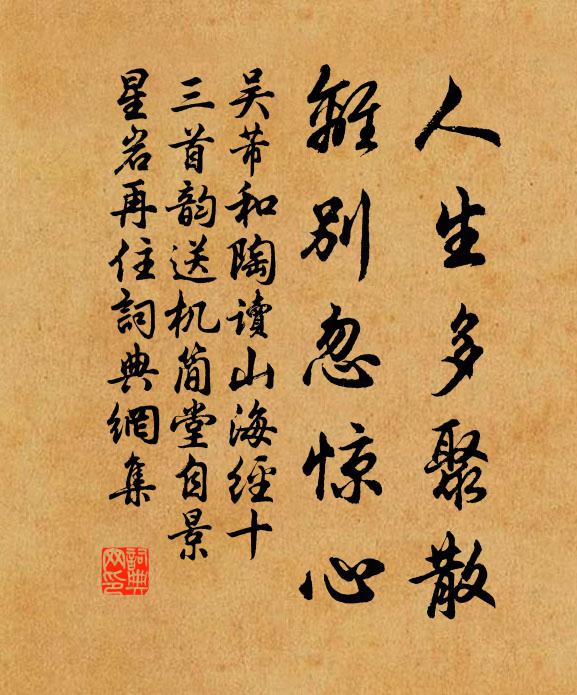 人生多聚散
離别忽惊心
吴芾和陶读山海經十
三首韵送机简堂自景
星岩再住詞典網集
詞典网印